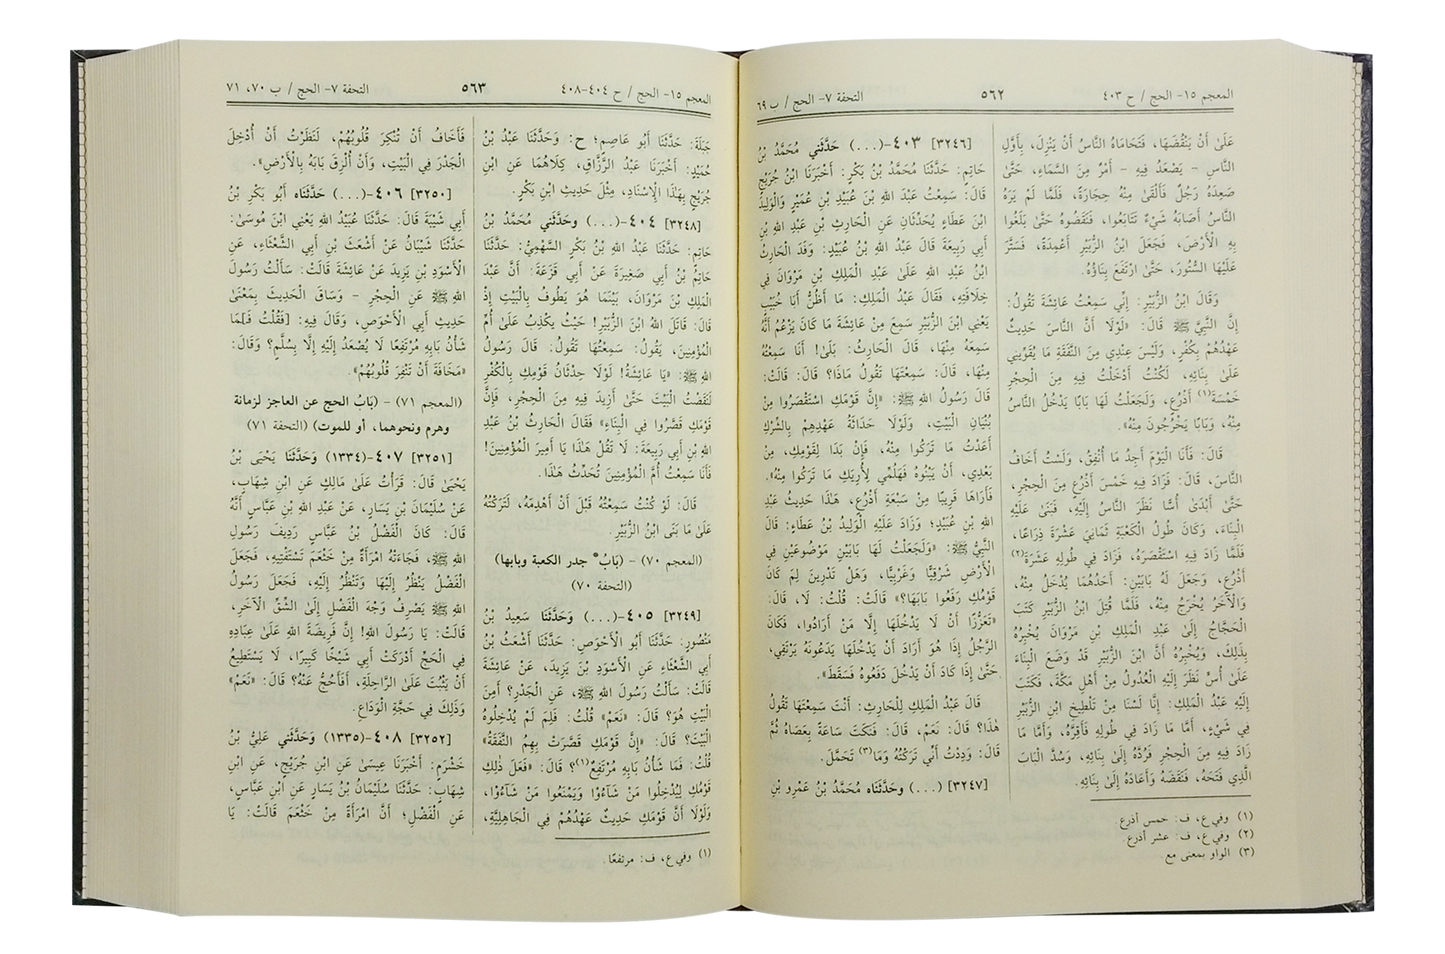 المعجم ١٥- الحج / ح ٤٠٣
٥٦٢
التحفة ٧- الحج / ب ٦٩
عَلَىٰ أَنْ يَنْقُضَهَا، فَتَحَامَاهُ النَّاسُ أَنْ يَنْزِلَ، بِأَوَّلِ
النَّاسِ - يَصْعَدُ فِيهِ - أَمْرٌ مِنَ السَّمَاءِ، حَتَّىٰ
صَعِدَهُ رَجُلٌ فَأَلْقَىٰ مِنْهُ حِجَارَةً، فَلَمَّا لَمْ يَرَهُ
النَّاسُ أَصَابَهُ شَيْءٌ تَتَابَعُوا، فَنَقَضُوهُ حَتَّىٰ بَلَغُوا
بِهِ الْأَرْضَ، فَجَعَلَ ابْنُ الزُّبَيْرِ أَعْمِدَةً، فَسَتَّرَ
عَلَيْهَا السُّتُورَ، حَتَّىٰ ارْتَفَعَ بِنَاؤُهُ.
وَقَالَ ابْنُ الزُّبَيْرِ: إِنِّي سَمِعْتُ عَائِشَةَ تَقُولُ:
إِنَّ النَّبِيَّ ﷺ قَالَ: «لَوْلَا أَنَّ النَّاسَ حَدِيثٌ
عَهْدُهُمْ بِكُفْرٍ، وَلَيْسَ عِنْدِي مِنَ النَّفَقَةِ مَا يُقَوِّينِي
عَلَىٰ بِنَائِهِ، لَكُنْتُ أَدْخَلْتُ فِيهِ مِنَ الْحِجْرِ
خَمْسَةَ(١) أَذْرُعٍ، وَلَجَعَلْتُ لَهَا بَابًا يَدْخُلُ النَّاسُ
مِنْهُ، وَبَابًا يَخْرُجُونَ مِنْهُ».
قَالَ: فَأَنَا الْيَوْمَ أَجِدُ مَا أُنْفِقُ، وَلَسْتُ أَخَافُ
النَّاسَ، قَالَ: فَزَادَ فِيهِ خَمْسَ أَذْرُعٍ مِنَ الْحِجْرِ،
حَتَّىٰ أَبْدَىٰ أُسًّا نَظَرَ النَّاسُ إِلَيْهِ، فَبَنَىٰ عَلَيْهِ
الْبِنَاءَ، وَكَانَ طُولُ الْكَعْبَةِ ثَمَانِيَ عَشْرَةَ ذِرَاعًا،
فَلَمَّا زَادَ فِيهِ اسْتَقْصَرَهُ، فَزَادَ فِي طُولِهِ عَشْرَةَ(٢)
أَذْرُعٍ، وَجَعَلَ لَهُ بَابَيْنِ: أَحَدُهُمَا يُدْخَلُ مِنْهُ،
وَالْآخَرُ يُخْرَجُ مِنْهُ، فَلَمَّا قُتِلَ ابْنُ الزُّبَيْرِ كَتَبَ
الْحَجَّاجُ إِلَىٰ عَبْدِ الْمَلِكِ بْنِ مَرْوَانَ يُخْبِرُهُ
بِذَلِكَ، وَيُخْبِرُهُ أَنَّ ابْنَ الزُّبَيْرِ قَدْ وَضَعَ الْبِنَاءَ
عَلَىٰ أُسٍّ نَظَرَ إِلَيْهِ الْعُدُولُ مِنْ أَهْلِ مَكَّةَ، فَكَتَبَ
إِلَيْهِ عَبْدُ الْمَلِكِ: إِنَّا لَسْنَا مِنْ تَلْطِيخِ ابْنِ الزُّبَيْرِ
فِي شَيْءٍ، أَمَّا مَا زَادَ فِي طُولِهِ فَأَقِرَّهُ، وَأَمَّا مَا
زَادَ فِيهِ مِنَ الْحِجْرِ فَرُدَّهُ إِلَىٰ بِنَائِهِ، وَسُدَّ الْبَابَ
الَّذِي فَتَحَهُ، فَنَقَضَهُ وَأَعَادَهُ إِلَىٰ بِنَائِهِ.
[٣٢٤٦] ٤٠٣-(...) حَدَّثَنِي مُحَمَّدُ بْنُ
حَاتِمٍ: حَدَّثَنَا مُحَمَّدُ بْنُ بَكْرٍ: أَخْبَرَنَا ابْنُ جُرَيْجٍ
قَالَ: سَمِعْتُ عَبْدَ اللهِ بْنَ عُبَيْدِ بْنِ عُمَيْرٍ وَالْوَلِيدَ
ابْنَ عَطَاءٍ يُحَدِّثَانِ عَنِ الْحَارِثِ بْنِ عَبْدِ اللهِ بْنِ
أَبِي رَبِيعَةَ قَالَ عَبْدُ اللهِ بْنُ عُبَيْدٍ: وَفَدَ الْحَارِثُ
ابْنُ عَبْدِ اللهِ عَلَىٰ عَبْدِ الْمَلِكِ بْنِ مَرْوَانَ فِي
خِلَافَتِهِ، فَقَالَ عَبْدُ الْمَلِكِ: مَا أَظُنُّ أَبَا خُبَيْبٍ
يَعْنِي ابْنَ الزُّبَيْرِ سَمِعَ مِنْ عَائِشَةَ مَا كَانَ يَزْعُمُ أَنَّهُ
سَمِعَهُ مِنْهَا، قَالَ الْحَارِثُ: بَلَىٰ! أَنَا سَمِعْتُهُ
مِنْهَا، قَالَ: سَمِعْتَهَا تَقُولُ مَاذَا؟ قَالَ: قَالَتْ:
قَالَ رَسُولُ اللهِ ﷺ: «إِنَّ قَوْمَكِ اسْتَقْصَرُوا مِنْ
بُنْيَانِ الْبَيْتِ، وَلَوْلَا حَدَاثَةُ عَهْدِهِمْ بِالشِّرْكِ
أَعَدْتُ مَا تَرَكُوا مِنْهُ، فَإِنْ بَدَا لِقَوْمِكِ، مِنْ
بَعْدِي، أَنْ يَبْنُوهُ فَهَلُمِّي لِأُرِيَكِ مَا تَرَكُوا مِنْهُ».
فَأَرَاهَا قَرِيبًا مِنْ سَبْعَةِ أَذْرُعٍ، هَٰذَا حَدِيثُ عَبْدِ
اللهِ بْنِ عُبَيْدٍ؛ وَزَادَ عَلَيْهِ الْوَلِيدُ بْنُ عَطَاءٍ: قَالَ
النَّبِيُّ ﷺ: «وَلَجَعَلْتُ لَهَا بَابَيْنِ مَوْضُوعَيْنِ فِي
الْأَرْضِ شَرْقِيًّا وَغَرْبِيًّا، وَهَلْ تَدْرِينَ لِمَ كَانَ
قَوْمُكِ رَفَعُوا بَابَهَا؟» قَالَتْ: قُلْتُ: لَا، قَالَ:
«تَعَزُّزًا أَنْ لَا يَدْخُلَهَا إِلَّا مَنْ أَرَادُوا، فَكَانَ
الرَّجُلُ إِذَا هُوَ أَرَادَ أَنْ يَدْخُلَهَا يَدَعُونَهُ يَرْتَقِي،
حَتَّىٰ إِذَا كَادَ أَنْ يَدْخُلَ دَفَعُوهُ فَسَقَطَ».
قَالَ عَبْدُ الْمَلِكِ لِلْحَارِثِ: أَنْتَ سَمِعْتَهَا تَقُولُ
هَٰذَا؟ قَالَ: نَعَمْ، قَالَ: فَنَكَتَ سَاعَةً بِعَصَاهُ ثُمَّ
قَالَ: وَدِدْتُ أَنِّي تَرَكْتُهُ وَمَا(٣) تَحَمَّلَ.
[٣٢٤٧] (...) وَحَدَّثَنَاه مُحَمَّدُ بْنُ عَمْرِو بْنِ
(١) وفي ع، ف: خمس أذرع
(٢) وفي ع، ف: عشر أذرع.
(٣) الواو بمعنى مع.
المعجم ١٥- الحج / ح ٤٠٤-٤٠٨
٥٦٣
التحفة ٧- الحج / ب ٧٠، ٧١
جَبَلَةَ: حَدَّثَنَا أَبُو عَاصِمٍ؛ ح: وَحَدَّثَنَا عَبْدُ بْنُ
حُمَيْدٍ: أَخْبَرَنَا عَبْدُ الرَّزَّاقِ، كِلَاهُمَا عَنِ ابْنِ
جُرَيْجٍ بِهَٰذَا الْإِسْنَادِ، مِثْلَ حَدِيثِ ابْنِ بَكْرٍ.
[٣٢٤٨] ٤٠٤-(...) وحَدَّثَنِي مُحَمَّدُ بْنُ
حَاتِمٍ: حَدَّثَنَا عَبْدُ اللهِ بْنُ بَكْرٍ السَّهْمِيُّ: حَدَّثَنَا
حَاتِمُ بْنُ أَبِي صَغِيرَةَ عَنْ أَبِي قَزَعَةَ: أَنَّ عَبْدَ
الْمَلِكِ بْنَ مَرْوَانَ، بَيْنَمَا هُوَ يَطُوفُ بِالْبَيْتِ إِذْ
قَالَ: قَاتَلَ اللهُ ابْنَ الزُّبَيْرِ! حَيْثُ يَكْذِبُ عَلَىٰ أُمِّ
الْمُؤْمِنِينَ، يَقُولُ: سَمِعْتُهَا تَقُولُ: قَالَ رَسُولُ
اللهِ ﷺ: «يَا عَائِشَةُ! لَوْلَا حِدْثَانُ قَوْمِكِ بِالْكُفْرِ
لَنَقَضْتُ الْبَيْتَ حَتَّىٰ أَزِيدَ فِيهِ مِنَ الْحِجْرِ، فَإِنَّ
قَوْمَكِ قَصَّرُوا فِي الْبِنَاءِ» فَقَالَ الْحَارِثُ بْنُ عَبْدِ
اللهِ بْنِ أَبِي رَبِيعَةَ: لَا تَقُلْ هَٰذَا يَا أَمِيرَ الْمُؤْمِنِينَ!
فَأَنَا سَمِعْتُ أُمَّ الْمُؤْمِنِينَ تُحَدِّثُ هَٰذَا.
قَالَ: لَوْ كُنْتُ سَمِعْتُهُ قَبْلَ أَنْ أَهْدِمَهُ، لَتَرَكْتُهُ
عَلَىٰ مَا بَنَى ابْنُ الزُّبَيْرِ.
(المعجم ٧٠) - (بَابُ* جدر الكعبة وبابها)
(التحفة ٧٠)
[٣٢٤٩] ٤٠٥-(...) وَحَدَّثَنَا سَعِيدُ بْنُ
مَنْصُورٍ: حَدَّثَنَا أَبُو الْأَحْوَصِ: حَدَّثَنَا أَشْعَثُ بْنُ
أَبِي الشَّعْثَاءِ عَنِ الْأَسْوَدِ بْنِ يَزِيدَ، عَنْ عَائِشَةَ
قَالَتْ: سَأَلْتُ رَسُولَ اللهِ ﷺ، عَنِ الْجَدْرِ؟ أَمِنَ
الْبَيْتِ هُوَ؟ قَالَ: «نَعَمْ» قُلْتُ: فَلِمَ لَمْ يُدْخِلُوهُ
الْبَيْتَ؟ قَالَ: «إِنَّ قَوْمَكِ قَصَّرَتْ بِهِمُ النَّفَقَةُ»
قُلْتُ: فَمَا شَأْنُ بَابِهِ مُرْتَفِعٌ(١)؟ قَالَ: «فَعَلَ ذَلِكِ
قَوْمُكِ لِيُدْخِلُوا مَنْ شَاءُوْا وَيَمْنَعُوا مَنْ شَاءُوْا،
وَلَوْلَا أَنَّ قَوْمَكِ حَدِيثٌ عَهْدُهُمْ فِي الْجَاهِلِيَّةِ،
فَأَخَافُ أَنْ تُنْكِرَ قُلُوبُهُمْ، لَنَظَرْتُ أَنْ أُدْخِلَ
الْجَدْرَ فِي الْبَيْتِ، وَأَنْ أُلْزِقَ بَابَهُ بِالْأَرْضِ».
[٣٢٥٠] ٤٠٦-(...) حَدَّثَنَاه أَبُو بَكْرِ بْنُ
أَبِي شَيْبَةَ قَالَ: حَدَّثَنَا عُبَيْدُ اللهِ يَعْنِي ابْنَ مُوسَىٰ:
حَدَّثَنَا شَيْبَانُ عَنْ أَشْعَثَ بْنِ أَبِي الشَّعْثَاءِ، عَنِ
الْأَسْوَدِ بْنِ يَزِيدَ عَنْ عَائِشَةَ قَالَتْ: سَأَلْتُ رَسُولَ
اللهِ ﷺ عَنِ الْحِجْرِ - وَسَاقَ الْحَدِيثَ بِمَعْنَىٰ
حَدِيثِ أَبِي الْأَحْوَصِ، وَقَالَ فِيهِ: [فَقُلْتُ فَـ]ـمَا
شَأْنُ بَابِهِ مُرْتَفِعًا لَا يُصْعَدُ إِلَيْهِ إِلَّا بِسُلَّمٍ؟ وَقَالَ:
«مَخَافَةَ أَنْ تَنْفِرَ قُلُوبُهُمْ».
(المعجم ٧١) - (بَابُ الحج عن العاجز لزمانة
وهرم ونحوهما، أو للموت) (التحفة ٧١)
[٣٢٥١] ٤٠٧-(١٣٣٤) وَحَدَّثَنَا يَحْيَى بْنُ
يَحْيَىٰ قَالَ: قَرَأْتُ عَلَىٰ مَالِكٍ عَنِ ابْنِ شِهَابٍ،
عَنْ سُلَيْمَانَ بْنِ يَسَارٍ، عَنْ عَبْدِ اللهِ بْنِ عَبَّاسٍ أَنَّهُ
قَالَ: كَانَ الْفَضْلُ بْنُ عَبَّاسٍ رَدِيفَ رَسُولِ
اللهِ ﷺ، فَجَاءَتْهُ امْرَأَةٌ مِنْ خَثْعَمَ تَسْتَفْتِيهِ، فَجَعَلَ
الْفَضْلُ يَنْظُرُ إِلَيْهَا وَتَنْظُرُ إِلَيْهِ، فَجَعَلَ رَسُولُ
اللهِ ﷺ يَصْرِفُ وَجْهَ الْفَضْلِ إِلَى الشِّقِّ الْآخَرِ،
قَالَتْ: يَا رَسُولَ اللهِ! إِنَّ فَرِيضَةَ اللهِ عَلَىٰ عِبَادِهِ
فِي الْحَجِّ أَدْرَكَتْ أَبِي شَيْخًا كَبِيرًا، لَا يَسْتَطِيعُ
أَنْ يَثْبُتَ عَلَى الرَّاحِلَةِ، أَفَأَحُجُّ عَنْهُ؟ قَالَ: «نَعَمْ»
وَذَلِكَ فِي حَجَّةِ الْوَدَاعِ.
[٣٢٥٢] ٤٠٨-(١٣٣٥) وَحَدَّثَنِي عَلِيُّ بْنُ
خَشْرَمٍ: أَخْبَرَنَا عِيسَىٰ عَنِ ابْنِ جُرَيْجٍ، عَنِ ابْنِ
شِهَابٍ: حَدَّثَنَا سُلَيْمَانُ بْنُ يَسَارٍ عَنِ ابْنِ عَبَّاسٍ،
عَنِ الْفَضْلِ؛ أَنَّ امْرَأَةً مِنْ خَثْعَمَ قَالَتْ: يَا
(١) وفي ع، ف: مرتفعًا.